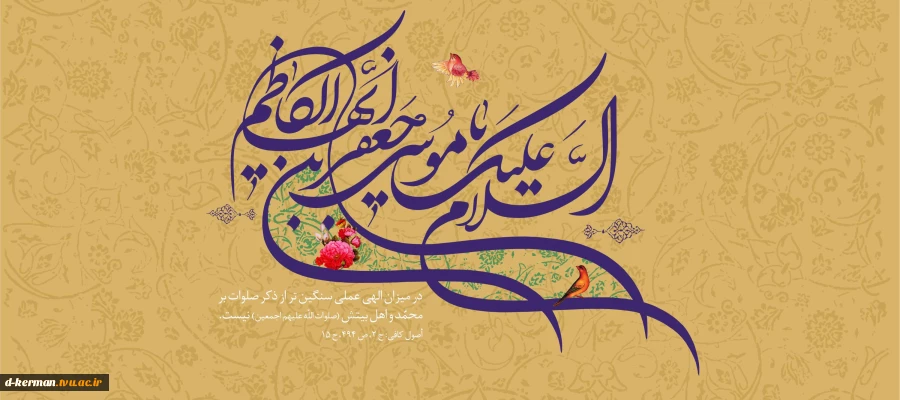 السَّلام علیکَ یا موُسی بن جَعفَر ایُّها الکاظِم
در میزان الهی عملی سنگین تر از ذکر صلوات بر
محمّد و اهل بیتش (صلوات الله علیهم اجمعین) نیست.
اصول کافی، ج ۲، ص ۴۹۴، ح ۱۵
d-kerman.tvu.ac.ir